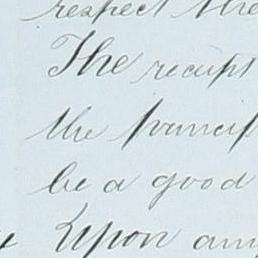 respect the
The receipt
the princip
be a good
Upon any